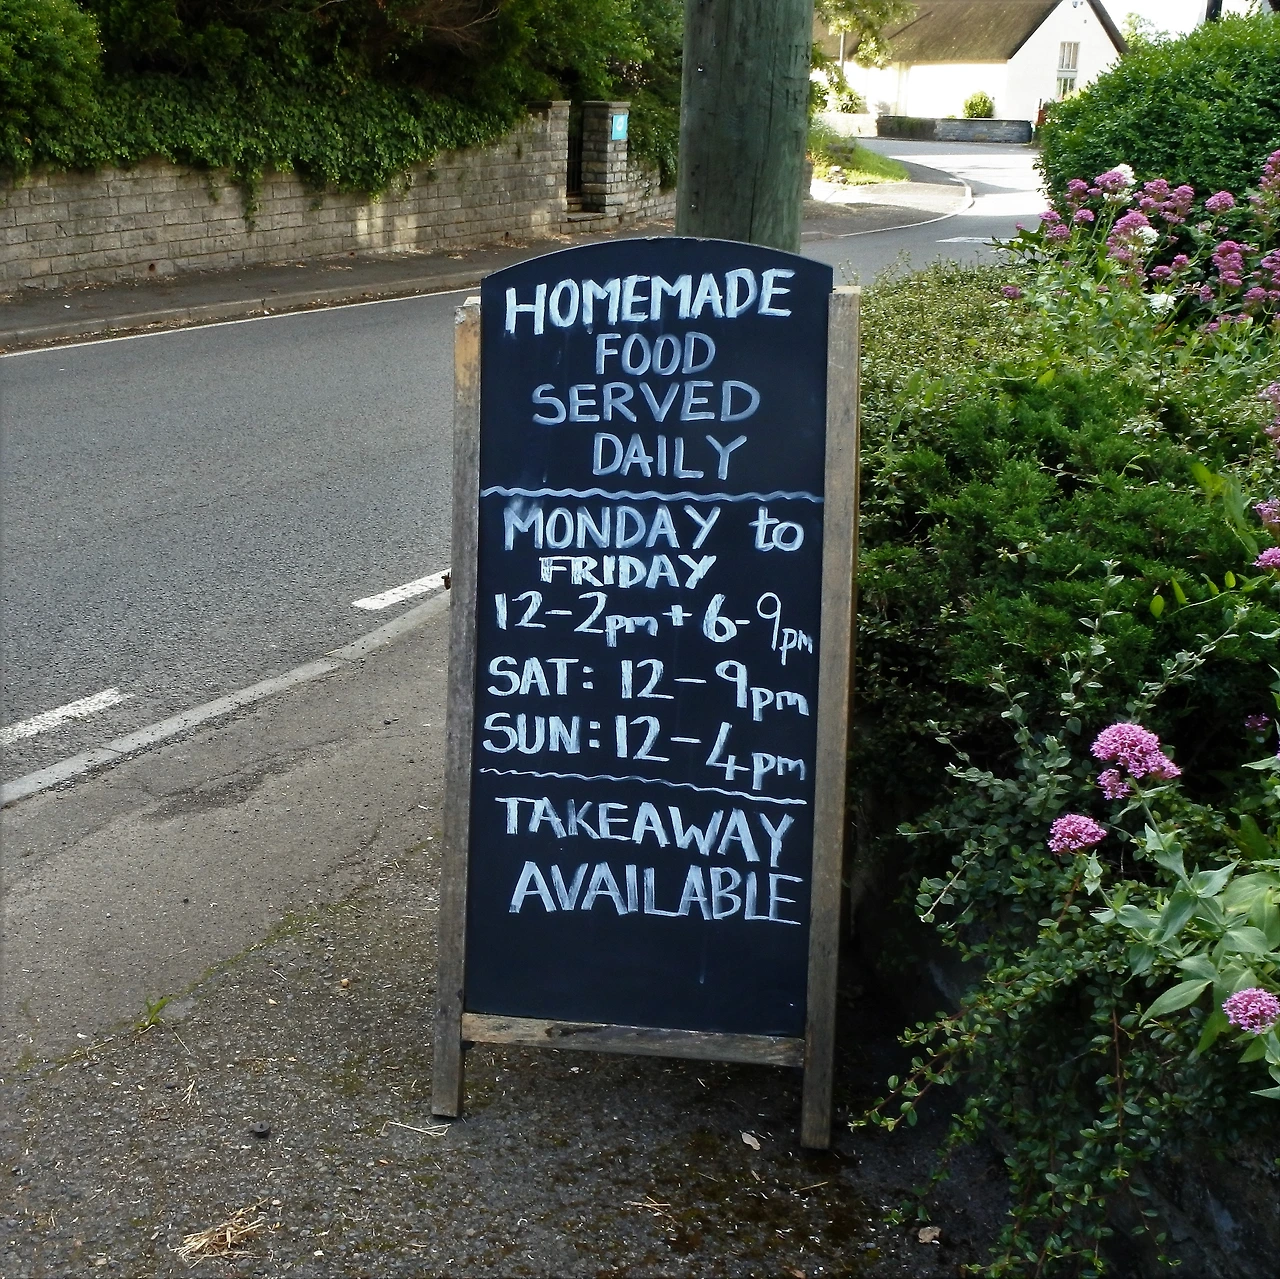 HOMEMADE
FOOD
SERVED
DAILY
MONDAY to
FRIDAY
12-2pm+6-9pm
SAT: 12-9pm
SUN: 12-4pm
TAKEAWAY
AVAILABLE